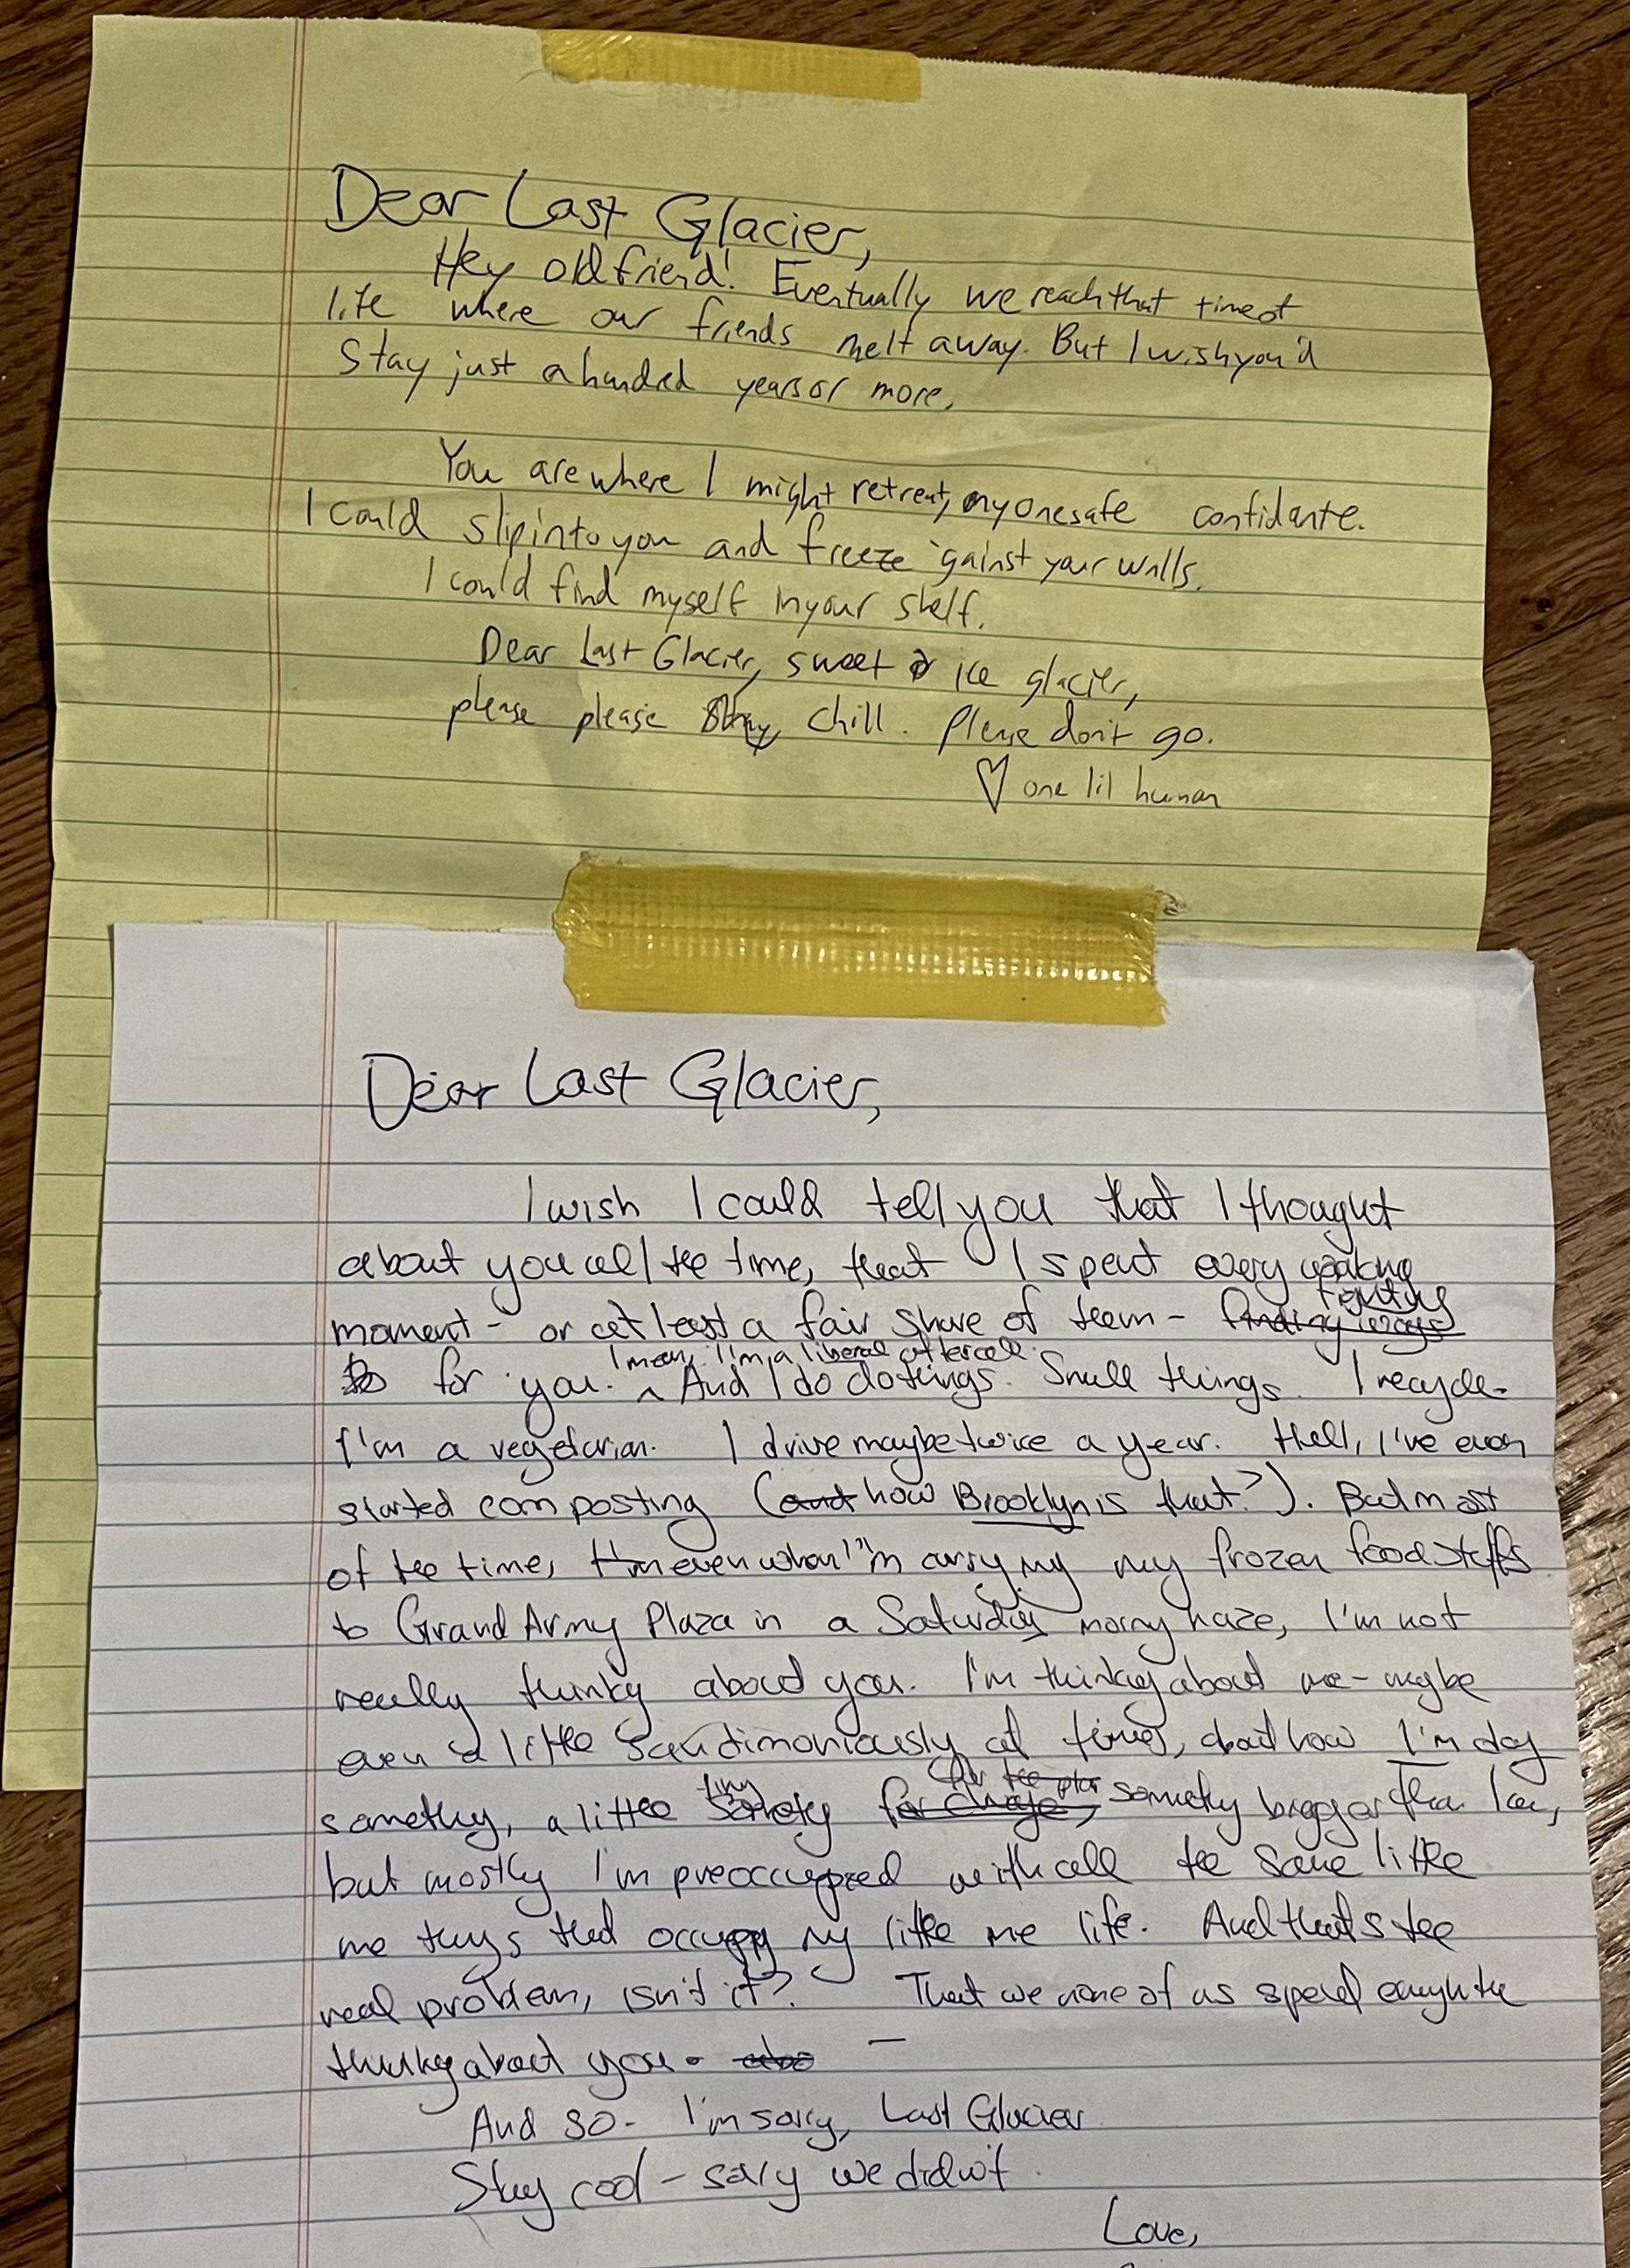 Dear Last Glacier,
Hey old friend! Eventually we reach that time of
life where our friends melt away. But I wish you'd
Stay just a hundred years or more.
You are where I might retreat, my one safe confidante.
I could slip into you and freeze 'gainst your walls.
I could find myself in your shelf.
Dear Last Glacier, sweet ice glacier,
please please stay chill. Please don't go.
♡ one lil human
Dear Last Glacier,
I wish I could tell you that I thought
about you all the time, that I spent every waking
fighting
moment - or at least a fair share of them - finding ways
I mean, I'm a liberal after all.
to for you. ^ And I do do things. Small things. I recycle.
I'm a vegetarian. I drive maybe twice a year. Hell, I've even
started composting (and how Brooklyn is that?). But most
of the time, I'm even when I'm carrying my frozen food stuffs
to Grand Army Plaza in a Saturday morng haze, I'm not
really thinkng about you. I'm thinking about me - maybe
even a little sanctimoniously at times, about how I'm doing
tiny for the
something, a little for change, something bigger than I am,
but mostly I'm preoccupied with all the same little
me things that occupy my little me life. And that's the
real problem, isn't it? That we none of us spend enough
thinking about you. -
And so - I'm sorry, Last Glacier
Stay cool - sorry we didn't.
Love,